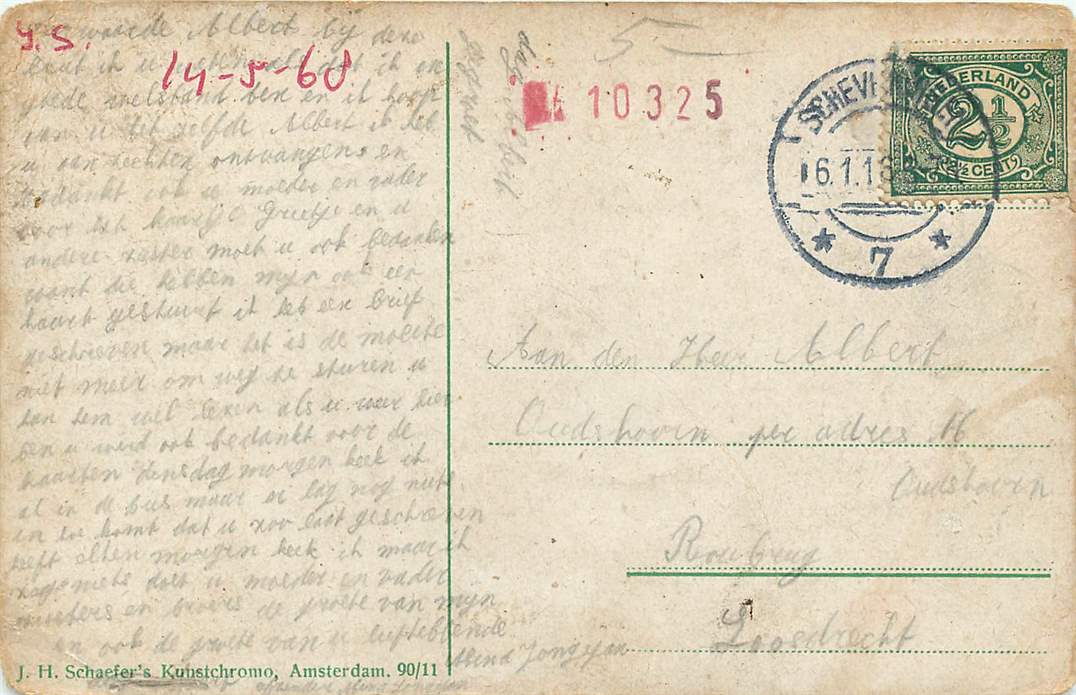 waarde Albert bij deze
Y. S.
14-5-68
laat ik u weten dat ik on
goede welstand ben en ik hoop
van u het zelfde Albert ik heb
u aan zichten ontvangens en
bedankt ook u moeder en vader
voor het kaartje Grietje en u
andere zuster moet u ook bedanken
want die hebben mijn ook een
kaart gestuurt ik heb een brief
geschreven maar het is de moeite
niet meer om weg te sturen u
kan hem wel lezen als u weer hier
ben u werd ook bedankt voor de
kaarten densdag morgen keek ik
al in de bus maar er lag nog niets
en hoe komt dat u zoo laat geschreven
heeft elken morgen keek ik maar ik
zag niets doet u moeder en vader
zusters en broers de groete van mijn
en ook de groete van u liefhebbende
Mina Jongejan
dag
5 -
10325
SCHEVENINGEN
6.1.16
7
NEDERLAND
2½
2½ CENT
Aan den Heer Albert
Oudshoorn per adres M
Oudshoorn
Loosdrecht
J. H. Schaefer's Kunstchromo, Amsterdam. 90/11